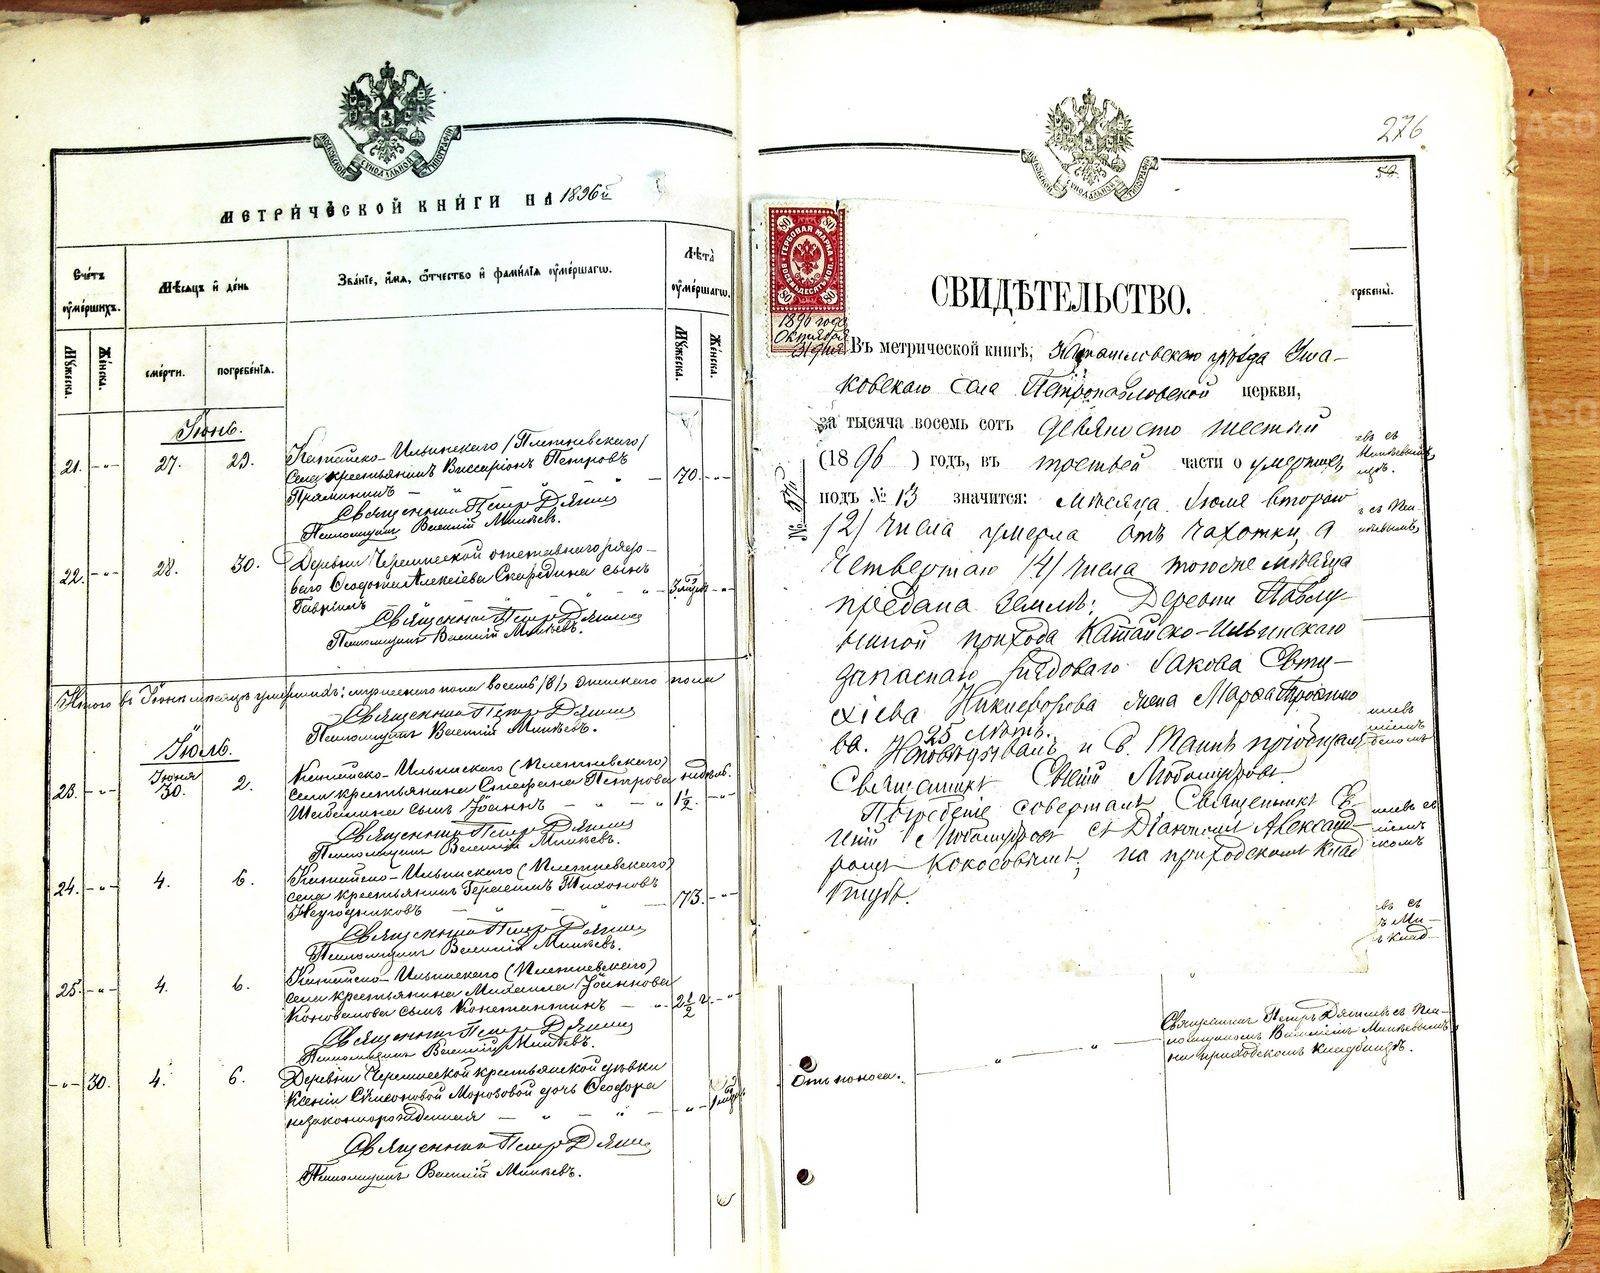 МОСКОВСКОЙ СѴНОДАЛЬНОЙ ТИПОГРАФІИ
МЕТРИЧЕСКОЙ КНИГИ НА 1896й
Счетъ умершихъ.
Мѣсяцъ и день
Званіе, имя, отчество и фамилія умершаго.
Лѣта умершаго.
Мужеска.
Женска.
смерти.
погребенія.
Мужеска.
Женска.
Іюнь.
21. -"- 27. 29. Катайско-Ильинскаго /Плетневскаго/
села крестьянинъ Виссаріонъ Петровъ
Прямининъ — " — " — 70. -"-
Священникъ Петръ Дягилев
Псаломщикъ Василій Минѣевъ.
22. -"- 28. 30. Деревни Черемисской отставнаго рядо-
ваго Ѳеодота Алексѣева Скоредина сынъ
Гавріилъ
Священникъ Петръ
Псаломщикъ Василій Минѣевъ.
Итого въ Іюнѣ мѣсяцѣ умершихъ: мужескаго пола восемь /8/, женскаго пола
Священникъ Петръ
Псаломщикъ Василій Минѣевъ.
Іюль.
23. -"- Іюня 30. 2. Катайско-Ильинскаго (Плетневскаго)
села крестьянина Стефана Петрова
сынъ Іоаннъ — " — " 1½ -"-
Священникъ Петръ
Псаломщикъ Василій Минѣевъ.
24. -"- 4. 6. Катайско-Ильинскаго (Плетневскаго)
села крестьянинъ Герасимъ Тихоновъ
Неугодниковъ — " — 73. -"-
Священникъ Петръ
Псаломщикъ Василій Минѣевъ.
25. -"- 4. 6. Катайско-Ильинскаго (Плетневскаго)
села крестьянина Михаила Іоаннова
Коновалова сынъ Константинъ — " 2½ г. -"-
Священникъ Петръ
Псаломщикъ Василій Минѣевъ.
-"- 30. 4. 6. Деревни Черемисской крестьянской дѣвки
Ксеніи Сѵмеоновой Морозовой дочь Ѳеодора
незаконнорожденная — " — " -"-
Священникъ Петръ
Псаломщикъ Василій Минѣевъ.
276
МОСКОВСКОЙ СѴНОДАЛЬНОЙ ТИПОГРАФІИ
ГЕРБОВАЯ МАРКА
ВОСЕМЬДЕСЯТЪ КОП.
80 80
80 80
1896 года
Октября
31 дня
СВИДѢТЕЛЬСТВО.
№ 570
Въ метрической книгѣ, Камышловскаго уѣзда Уша-
ковскаго села Петропавловской церкви,
за тысяча восемь сотъ девяносто шестый
(1896) годъ, въ третьей части о умершихъ
подъ № 13 значится: мѣсяца Іюля втораго
/2/ числа умерла отъ чахотки, а
четвертаго /4/ числа тогоже мѣсяца
предана землѣ: Деревни Павлу-
ниной прихода Катайско-Ильинскаго
запаснаго рядоваго Іакова Евти-
хіева Никифорова жена Марѳа
ва. 25 лѣтъ.
Исповѣдывалъ и Св. Таинъ пріобщалъ
Священникъ Евгеній Любомудровъ.
Погребеніе совершалъ Священникъ Ев-
геній Любомудровъ съ Діакономъ Александ-
ромъ Кокосовымъ, на приходскомъ клад-
бищѣ.
Отъ поноса.
" — "
Священникъ Петръ Дягилевъ съ Пса-
ломщикомъ Василіемъ Минѣевымъ
на приходскомъ кладбищѣ.